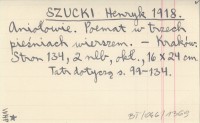 SZUCKI Henryk 1918.
Aniołowie. Poemat w trzech
pieśniach wierszem. – Kraków.
Stron 134, 2 nlb, okł., 16 x 24 cm.
Tatr dotyczą s. 99-134.